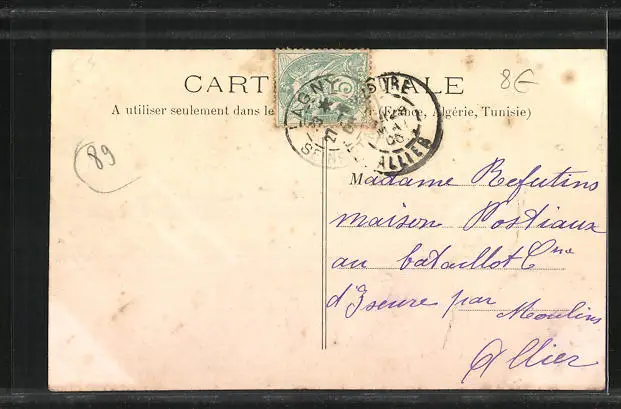 8€
CARTE POSTALE
A utiliser seulement dans le (France, Algérie, Tunisie)
LAGNY
SEINE
YSEURE
ALLIER
89
Madame Refutins
maison Postiaux
au bataillot Cne
d'Iseure par Moulins
Allier